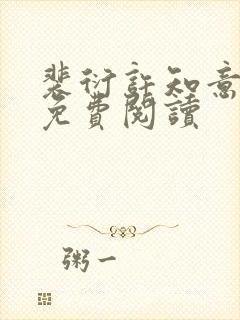 裴衍許知意
免費閱讀
粥一